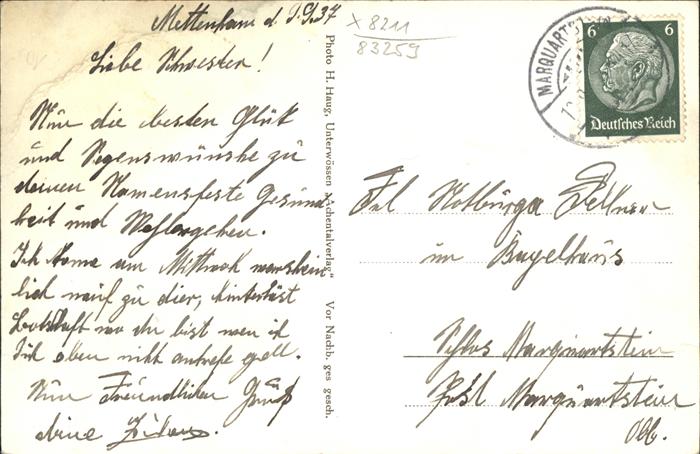 Mettenham d. 9.9.37
Liebe Schwester!
Nur die besten Glük
und Segenswünshe zu
deinen Namensfeste Gesund
heit und Wohlergehen.
Ich kome am Mittwoch warshein
lich nauf zu dier, hinterläst
Botschaft wo du bist wen ich
Dich oben nicht antrefe gell.
Nun Freundlichen Gruß
deine
x 8211
83259
Photo H. Haug, Unterwössen "Achentalverlag" Vor Nachb. ges gesch.
MARQUARTST
6 6
Deutsches Reich
Frl Notburga Pellner
im Bügelhaus
Schlos Marquartstein
Post Marquartstein
Obb.